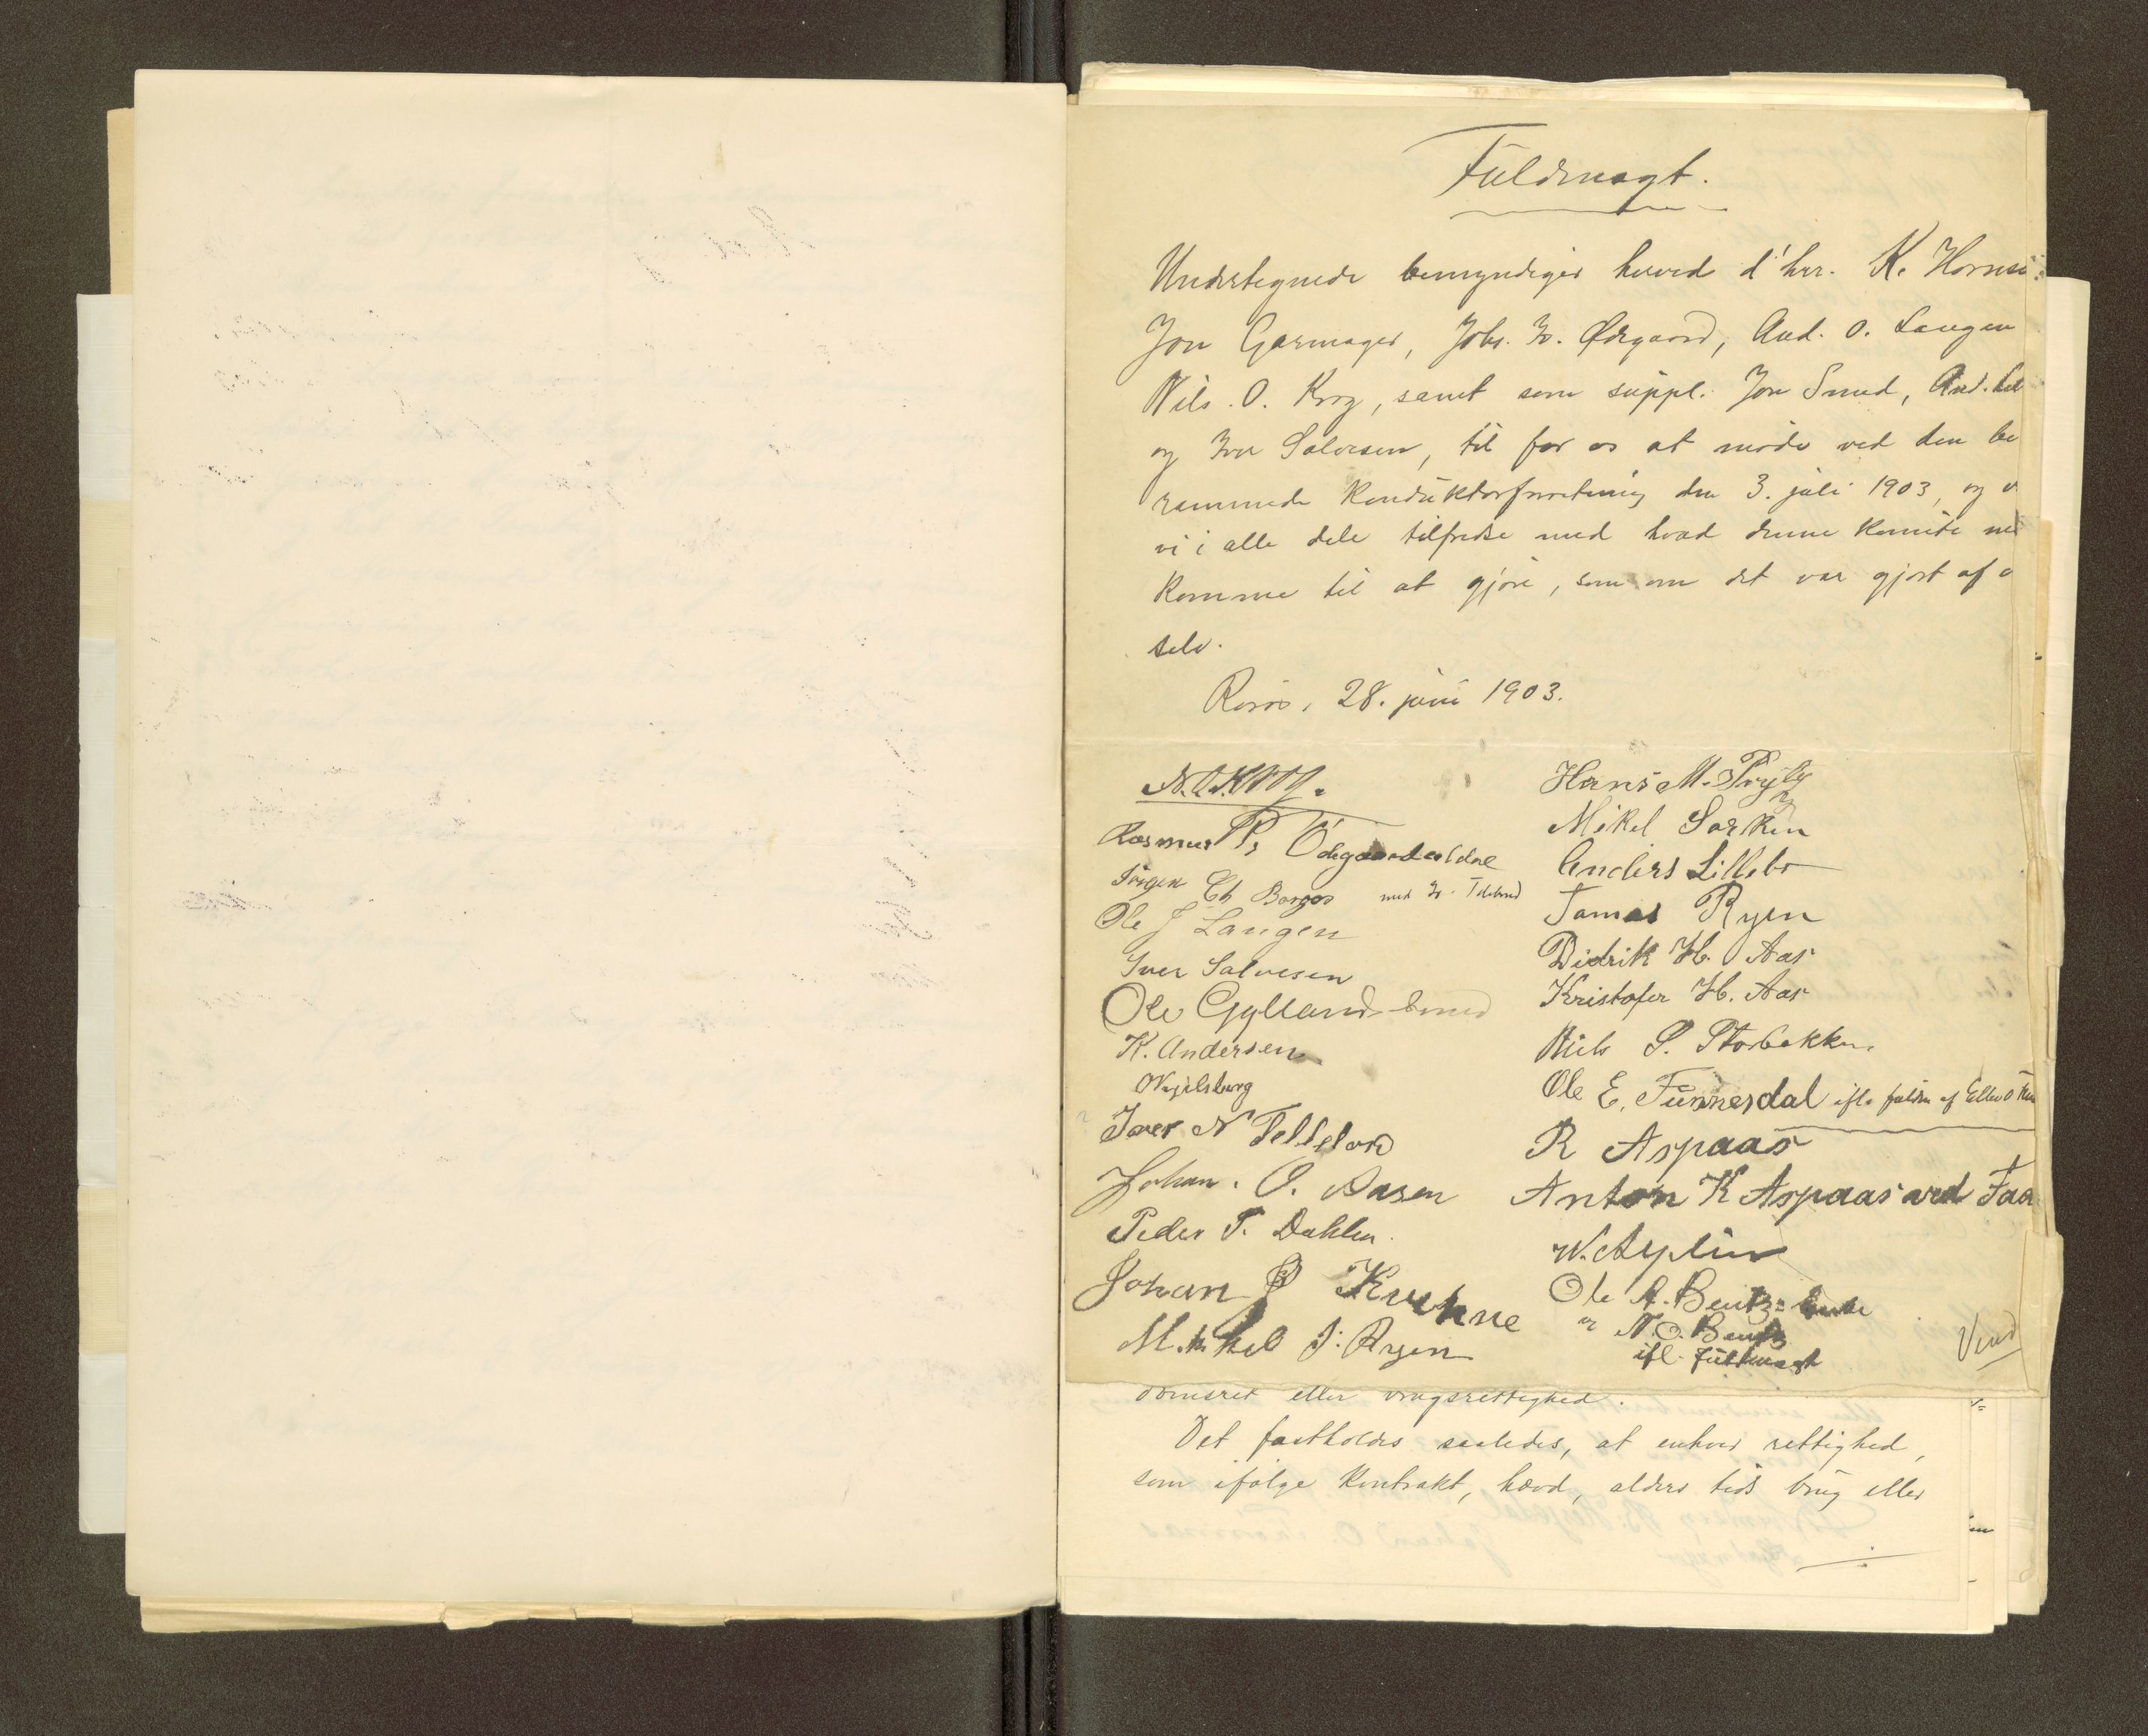 Fuldmagt.
Undertegnede bemyndiger herved d'hrr. K. Hornse
Jon Garmager, Johs. Iv. Ødegaard, And. O. Langen
Nils. O. Krog, samt som suppl. Jon Smed, And.
og Iver Salvesen, til for os at møde ved den be
rammede Konduktørforretning den 3. juli 1903, og
vi i alle dele tilfredse med hvad denne Komite
Komme til at gjøre, som om det var gjort af
selv.
Røros, 28. juni 1903.
N. O. Krog.
Rasmus P. Ödegaard
Jörgen Ch Borgos
Ole J Langen
Iver Salvesen
Ole Gylland
K. Andersen
Iver N
Johan. O. Aasen
Peder T. Dahlen.
Johan P Kuhne
Mikkel J. Ryen
Hans M. Prytz
Mikel Sarken
Anders Lillebo
Tamas Ryen
Didrik H. Aas
Kristofer H. Aas
Niels P. Storbekken.
Ole E. Tunnesdal ifl. fuldm. af Ellen O
R Aspaas
Anton K Aspaas ved
W. Asplin
Ole A. Bentz
N. O. Bentz
ifl. fuldmagt
Vend
domsret eller brugsrettighed.
Det fastholdes saaledes, at enhver rettighed,
som ifølge Kontrakt, hævd, alders tids brug eller